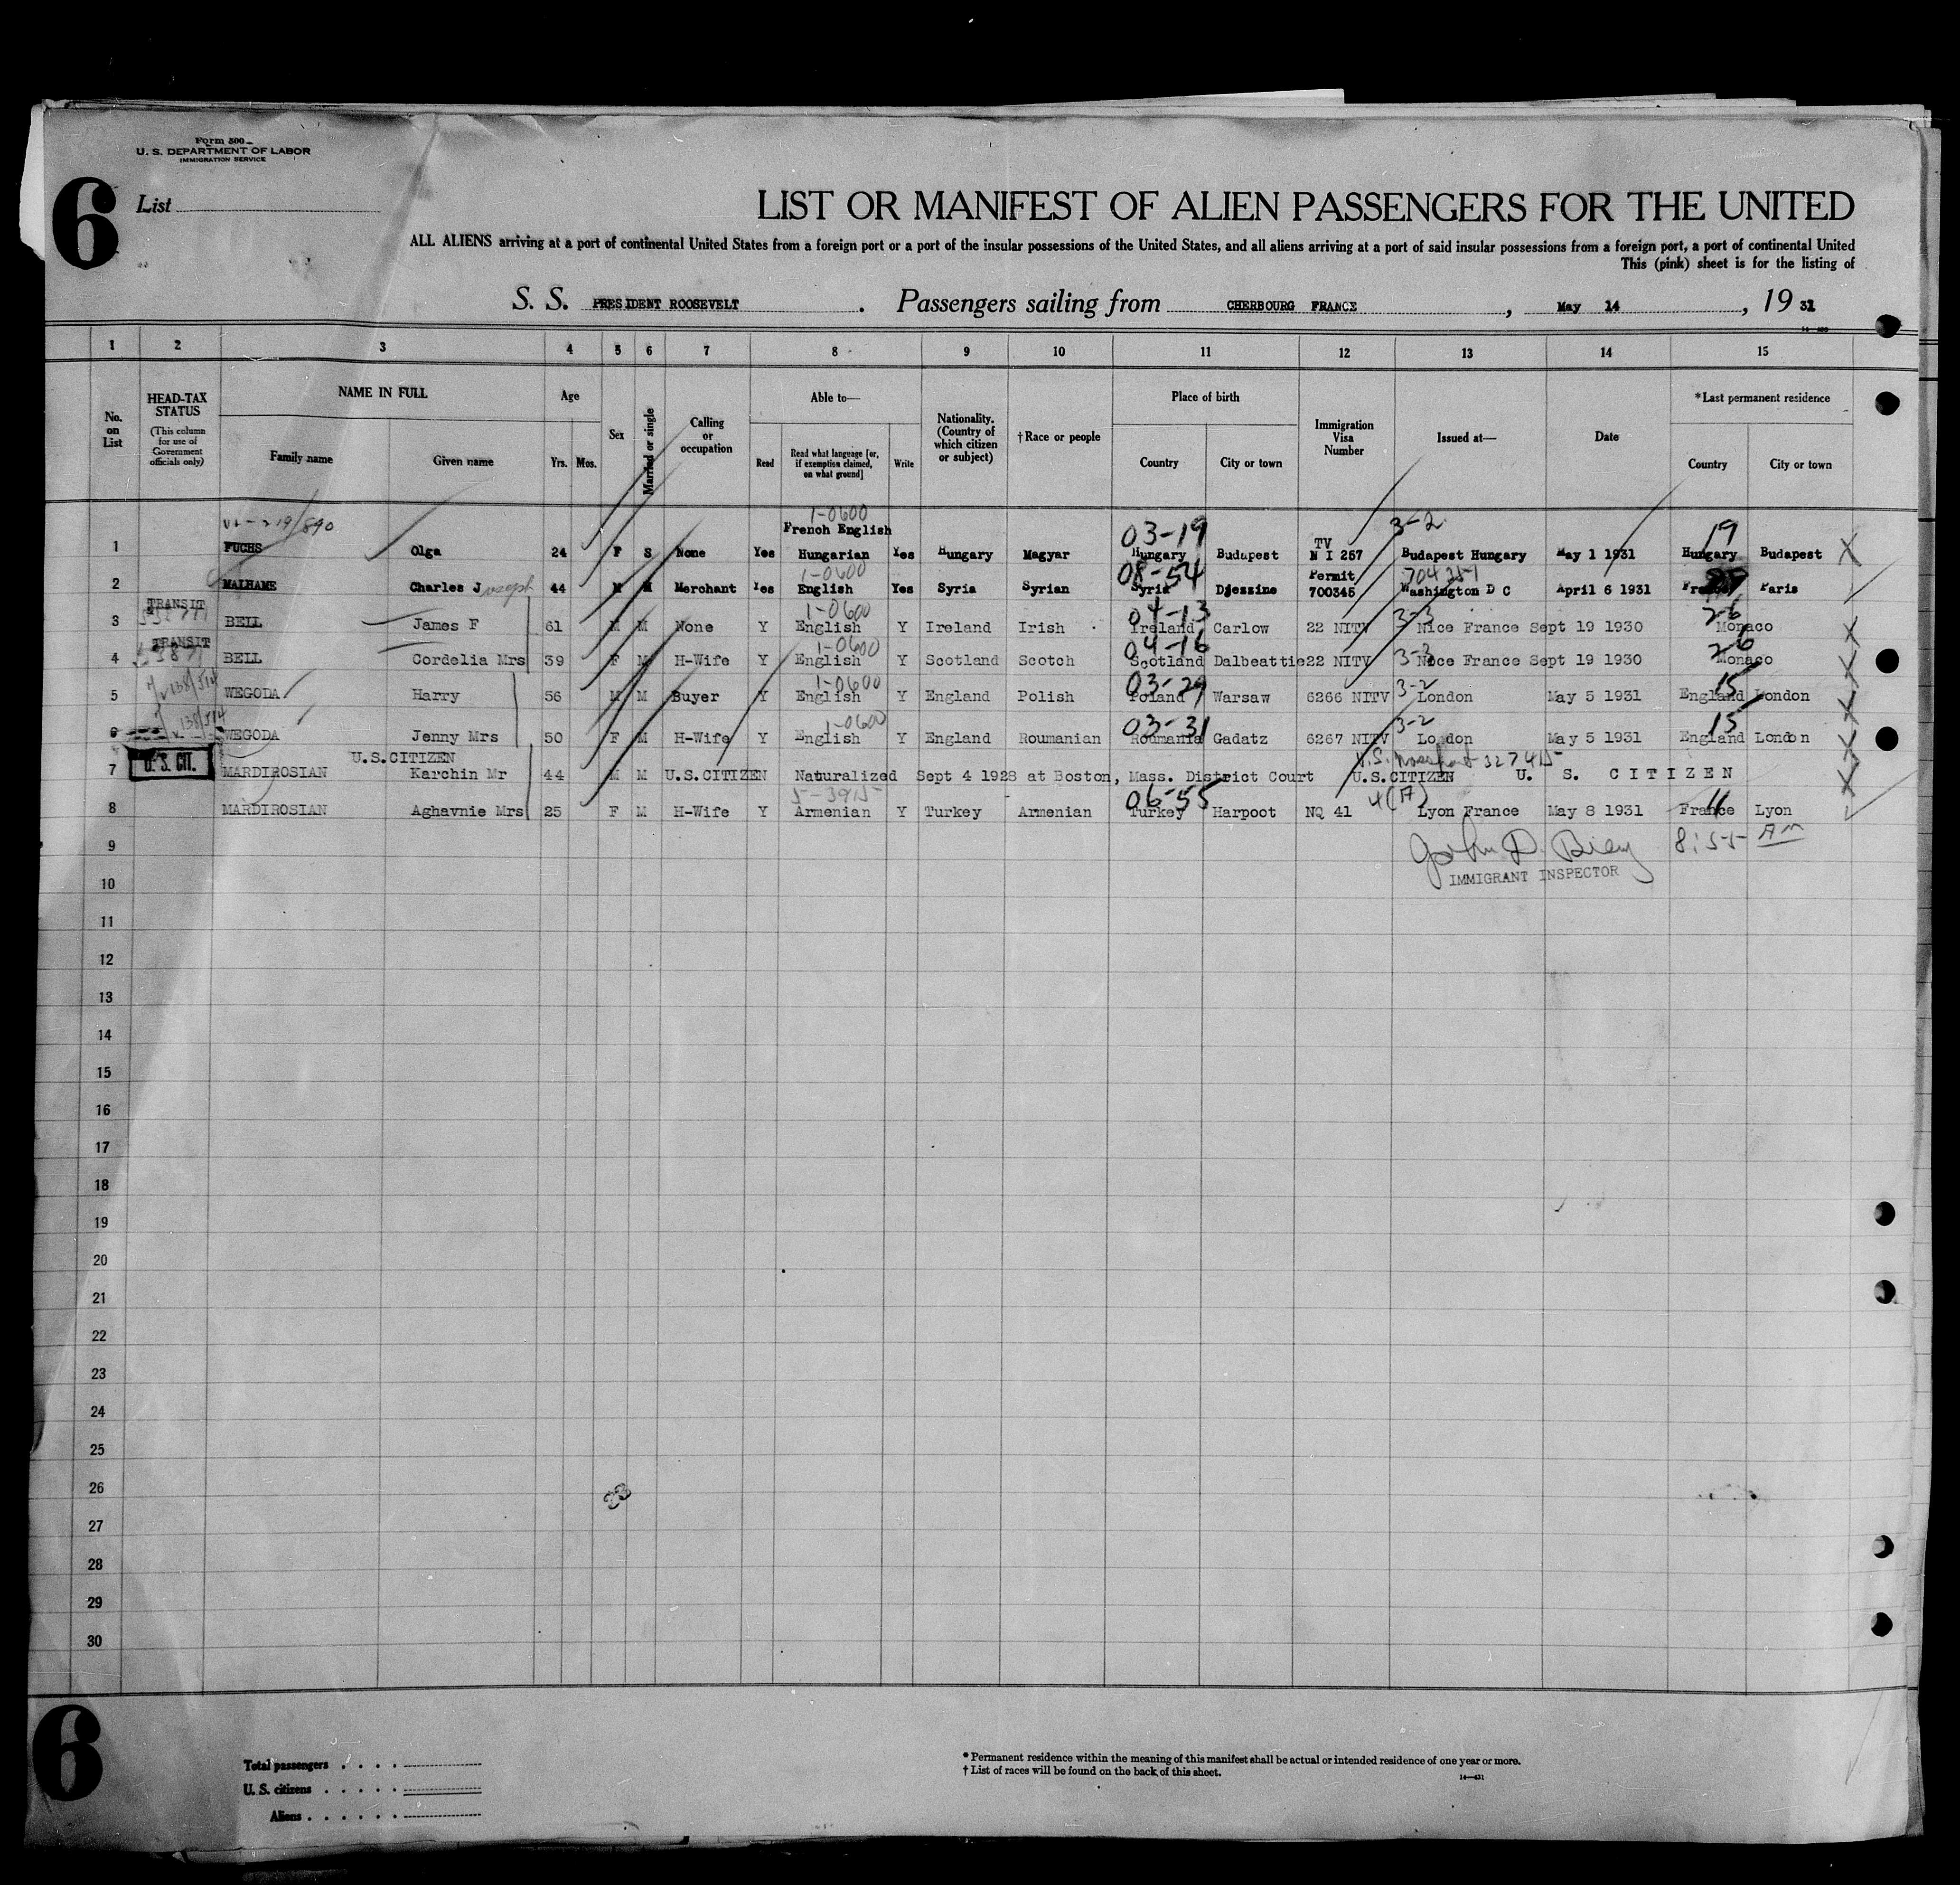 Form 500
U. S. DEPARTMENT OF LABOR
IMMIGRATION SERVICE
6
List
LIST OR MANIFEST OF ALIEN PASSENGERS FOR THE UNITED
ALL ALIENS arriving at a port of continental United States from a foreign port or a port of the insular possessions of the United States, and all aliens arriving at a port of said insular possessions from a foreign port, a port of continental United
This (pink) sheet is for the listing of
S. S. PRESIDENT ROOSEVELT . Passengers sailing from CHERBOURG FRANCE , May 14 , 19 31
1 2 3 4 5 6 7 8 9 10 11 12 13 14 15
No. on List
HEAD-TAX STATUS (This column for use of Government officials only)
NAME IN FULL
Family name
Given name
Age
Yrs. Mos.
Sex
Married or single
Calling or occupation
Able to—
Read
Read what language [or, if exemption claimed, on what ground]
Write
Nationality. (Country of which citizen or subject)
†Race or people
Place of birth
Country
City or town
Immigration Visa Number
Issued at—
Date
*Last permanent residence
Country
City or town
219/890 1-0600 03-19 3-2 19
French English TV
1 FUCHS Olga 24 F S None Yes Hungarian Yes Hungary Magyar Hungary Budapest N I 257 Budapest Hungary May 1 1931 Hungary Budapest X
1-0600 08-54 Permit 704251
2 MALHAME Charles Joseph 44 M M Merchant Yes English Yes Syria Syrian Syria Djezzine 700345 Washington D C April 6 1931 France Paris
TRANSIT 1-0600 04-13 3-3 26
3 BELL James F 61 M M None Y English Y Ireland Irish Ireland Carlow 22 NITV Nice France Sept 19 1930 Monaco X
TRANSIT 1-0600 04-16 3-3 26
4 BELL Cordelia Mrs 39 F M H-Wife Y English Y Scotland Scotch Scotland Dalbeattie 22 NITV Nice France Sept 19 1930 Monaco X
138/514 1-0600 03-29 3-2 15
5 WEGODA Harry 56 M M Buyer Y English Y England Polish Poland Warsaw 6266 NITV London May 5 1931 England London X
138/514 1-0600 03-31 3-2 15
6 WEGODA Jenny Mrs 50 F M H-Wife Y English Y England Roumanian Roumania Gadatz 6267 NITV London May 5 1931 England London X
U.S. CIT. U.S.CITIZEN U.S. Passport 327415
7 MARDIROSIAN Karchin Mr 44 M M U.S.CITIZEN Naturalized Sept 4 1928 at Boston, Mass. District Court U.S.CITIZEN U. S. CITIZEN X
5-3915 06-55 4(A) 11
8 MARDIROSIAN Aghavnie Mrs 25 F M H-Wife Y Armenian Y Turkey Armenian Turkey Harpoot NQ 41 Lyon France May 8 1931 France Lyon
9 John D. 8:55 AM
IMMIGRANT INSPECTOR
10
11
12
13
14
15
16
17
18
19
20
21
22
23
24
25
26
27
28
29
30
6
Total passengers
U.S. citizens
Aliens
* Permanent residence within the meaning of this manifest shall be actual or intended residence of one year or more.
† List of races will be found on the back of this sheet.
14—431